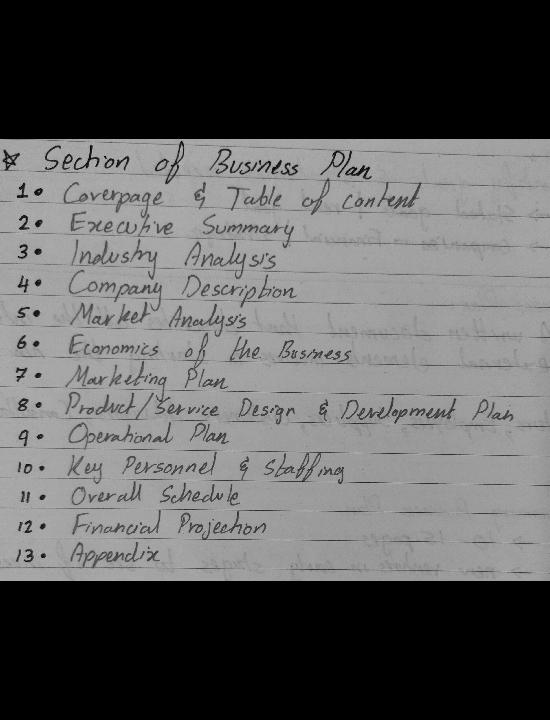 ☆ Section of Business Plan
1. Coverpage & Table of content
2. Executive Summary
3. Industry Analysis
4. Company Description
5. Market Analysis
6. Economics of the Business
7. Marketing Plan
8. Product/Service Design & Development Plan
9. Operational Plan
10. Key Personnel & Staffing
11. Overall Schedule
12. Financial Projection
13. Appendix